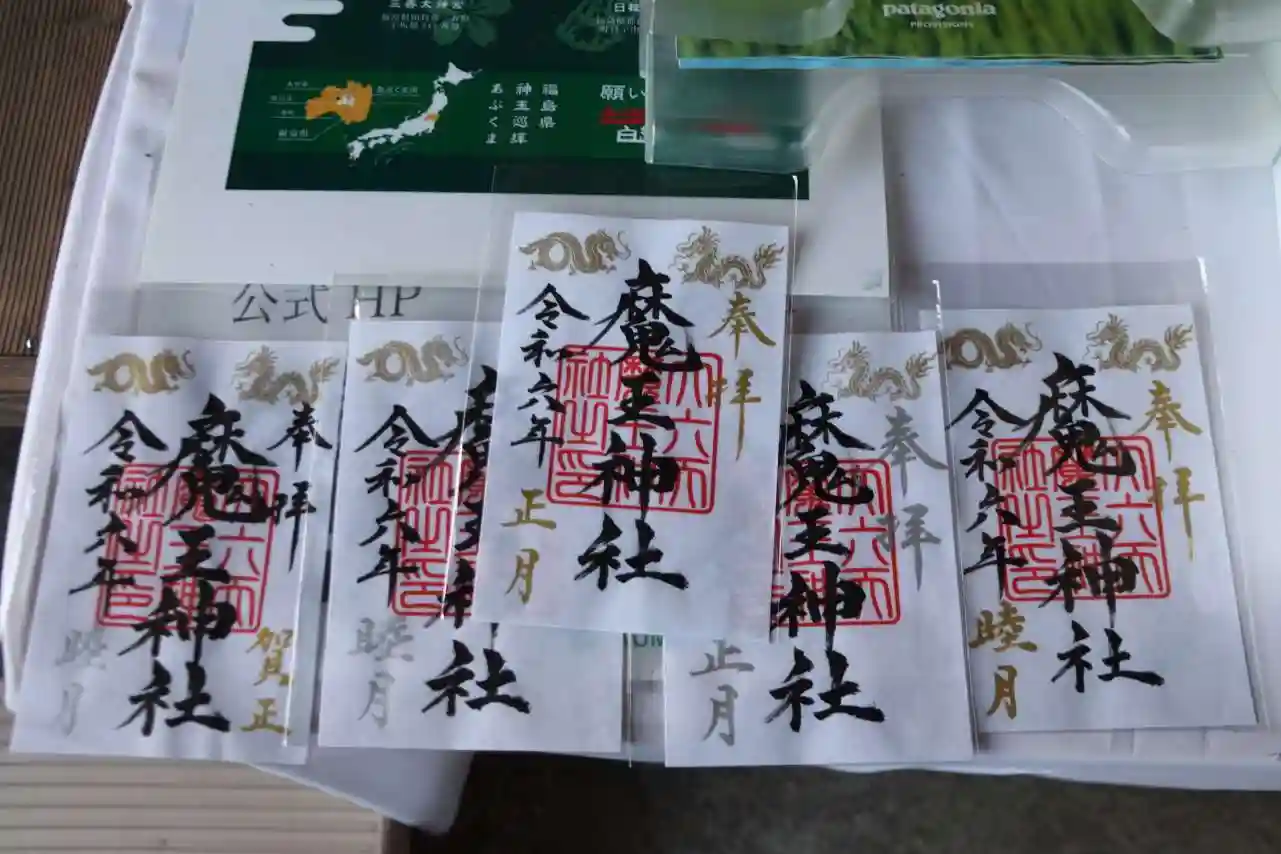 三春大神宮
patagonia
PROVISIONS
福島県
神玉巡輝
あぶくま
願い
公式 HP
奉拝
魔王神社
令和六年
賀正
睦月
魔王神社
令和六年
睦月
奉拝
魔王神社
令和六年
正月
奉拝
魔王神社
正月
奉拝
魔王神社
令和六年
睦月